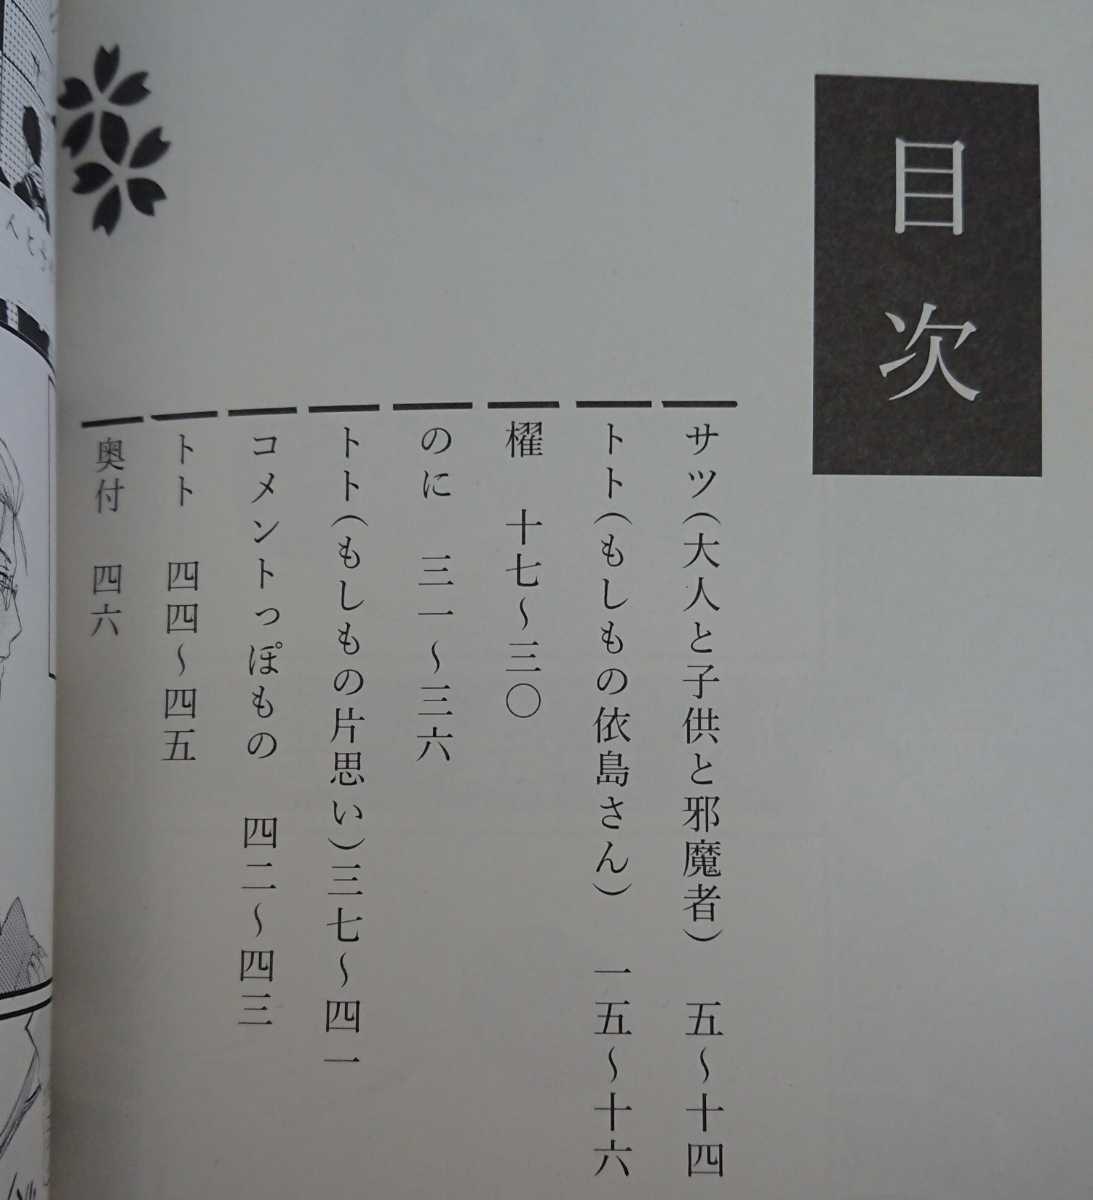 目次
サツ(大人と子供と邪魔者) 五~十四
トト(もしもの依島さん) 一五~十六
櫂 十七~三〇
のに 三一~三六
トト(もしもの片思い)三七~四一
コメントっぽもの 四二~四三
トト 四四~四五
奥付 四六